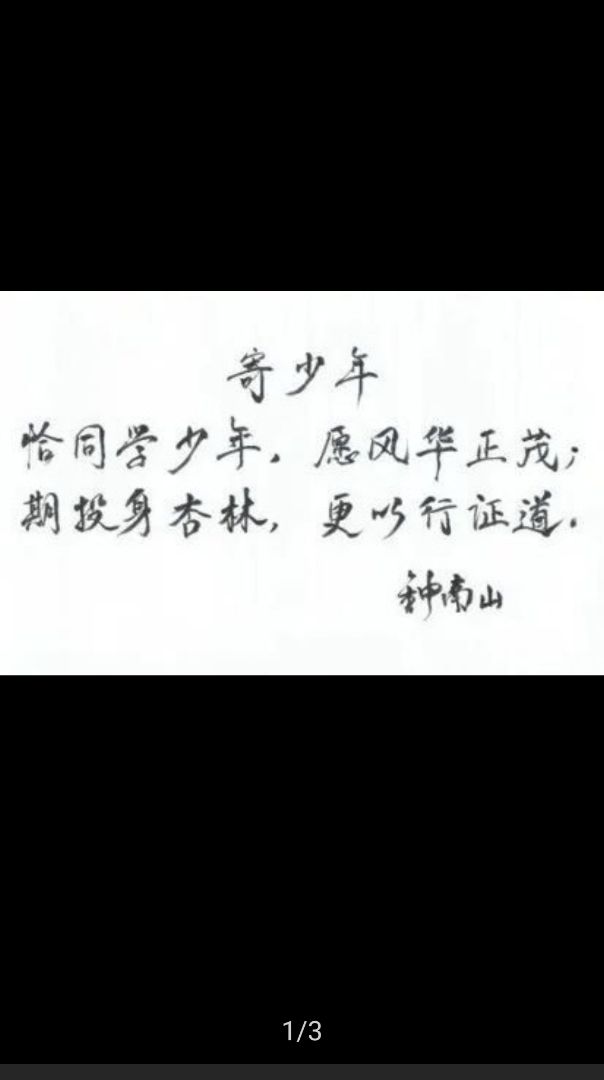 寄少年
恰同学少年，愿风华正茂；
期投身杏林，更以行证道。
钟南山
1/3